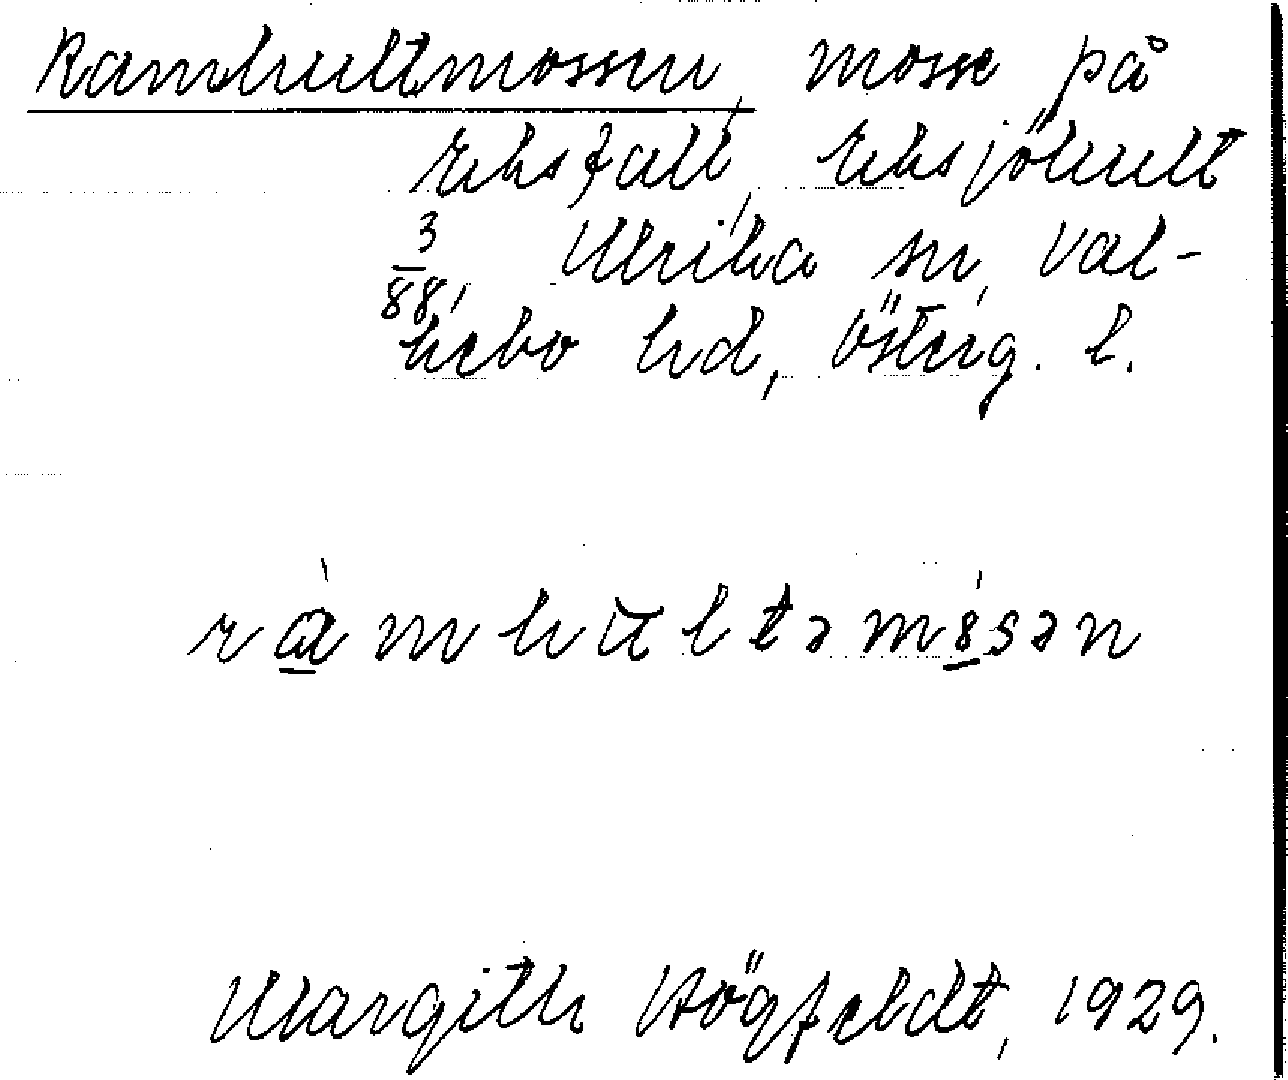 Ramhultmossen, mosse på
Eksfall, Eksjöhult
3/88, Ulrika sn, Val-
kebo hd, Österg. l.
ràmhultəmósən
Margith Högfeldt, 1929.